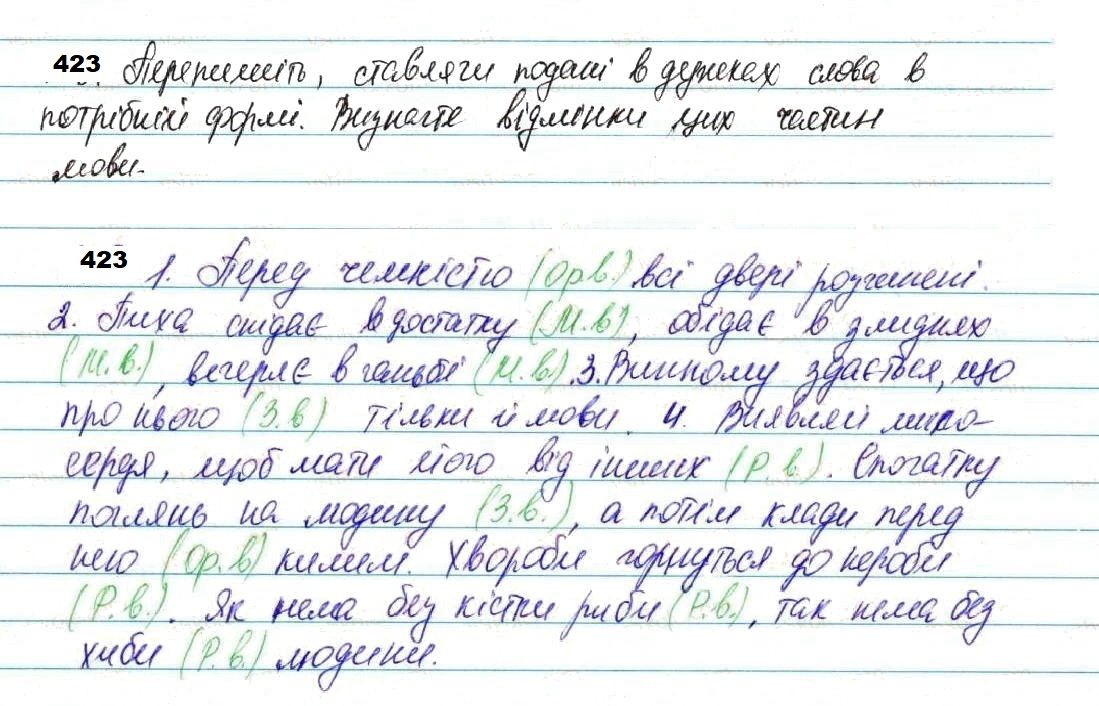 423 Перепишіть, ставлячи подані в дужках слова в
потрібній формі. Визначте відмінки цих частин
мови.
423 1. Перед чемністю (Ор.в.) всі двері розчинені.
2. Пиха снідає в достатку (М.в), обідає в злиднях
(М.в.), вечеряє в ганьбі (М.в.). 3. Винному здається, що
про нього (З.в) тільки й мови. 4. Виявляй мило-
сердя, щоб мати його від інших (Р.в.). Спочатку
поглянь на людину (З.в.), а потім клади перед
нею (Ор.в) килим. Хвороби горнуться до нероби
(Р.в.). Як нема без кістки риби (Р.в.), так нема без
хиби (Р.в.) людини.